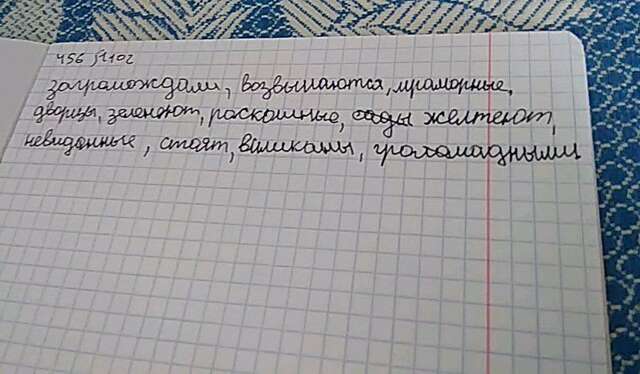 загромождали, возвышаются, мраморные,
дворцы, зеленеют, роскошные, сады желтеют,
невиданные, стоят, виликаны, громамадными